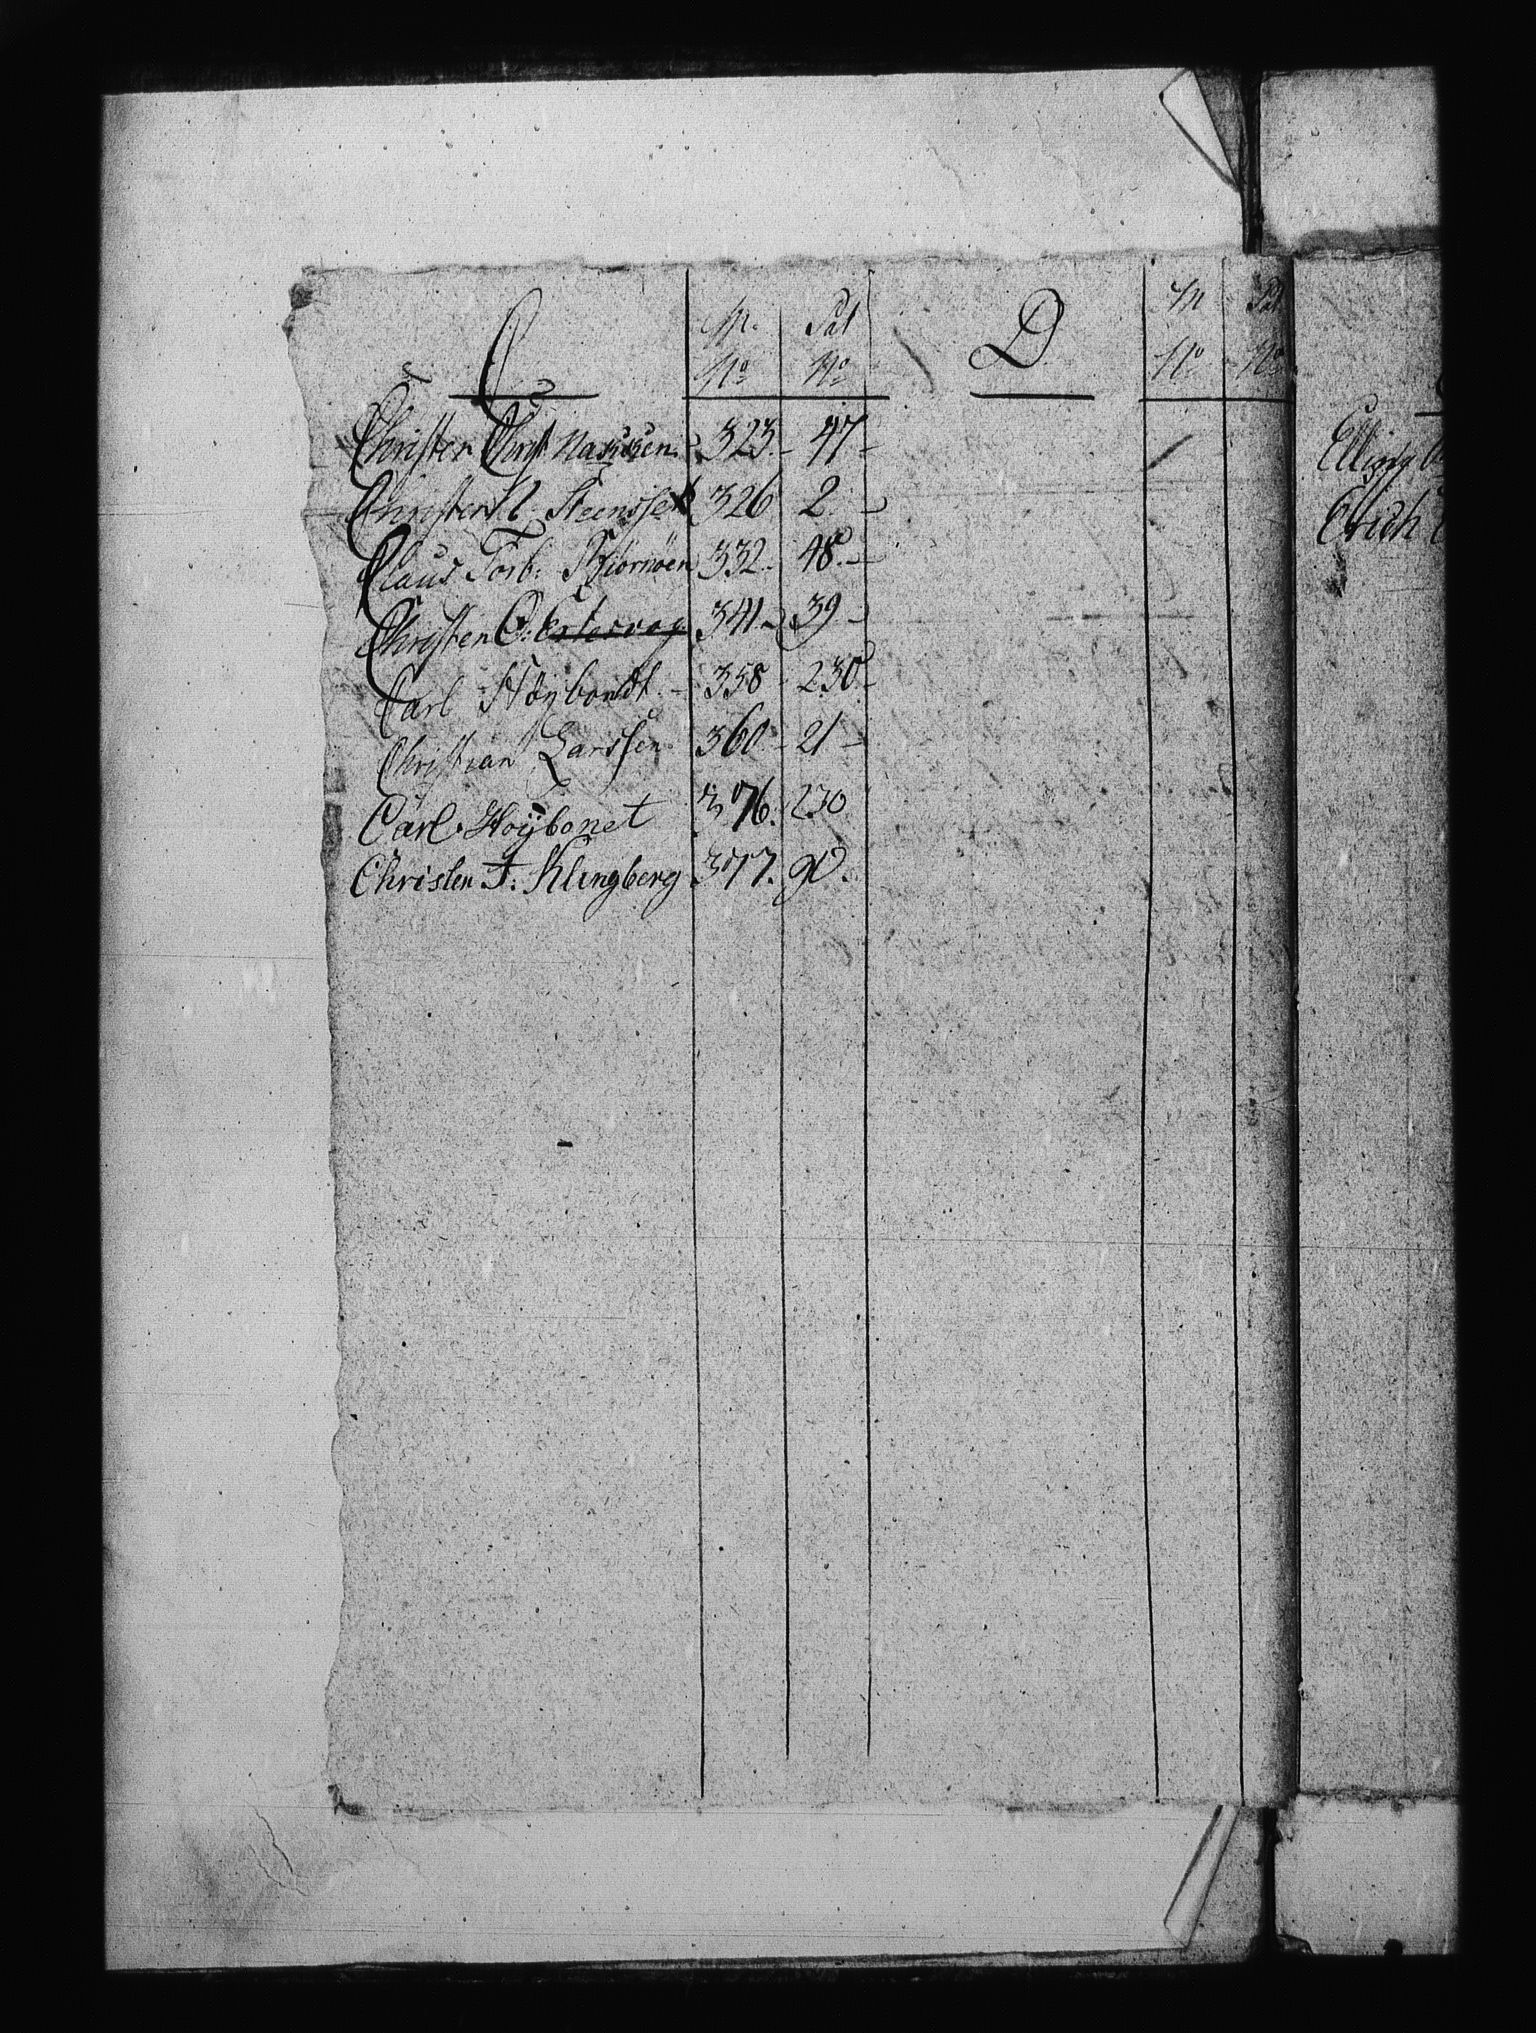 C M. Pat D M Pat
No No No No
Christen Christ Nasssen. 323. 47
Christen N. Steenssen 326 2.
Claus Torb: Biörnöen 332. 48.
Christen O: Ertesvog 341 39
Carl Höybondt. 358 230
Christian Larssen 360 21
Carl Hoÿbonet 376. 230
Christen F: Klingberg 377. 90.
Elling
Erich